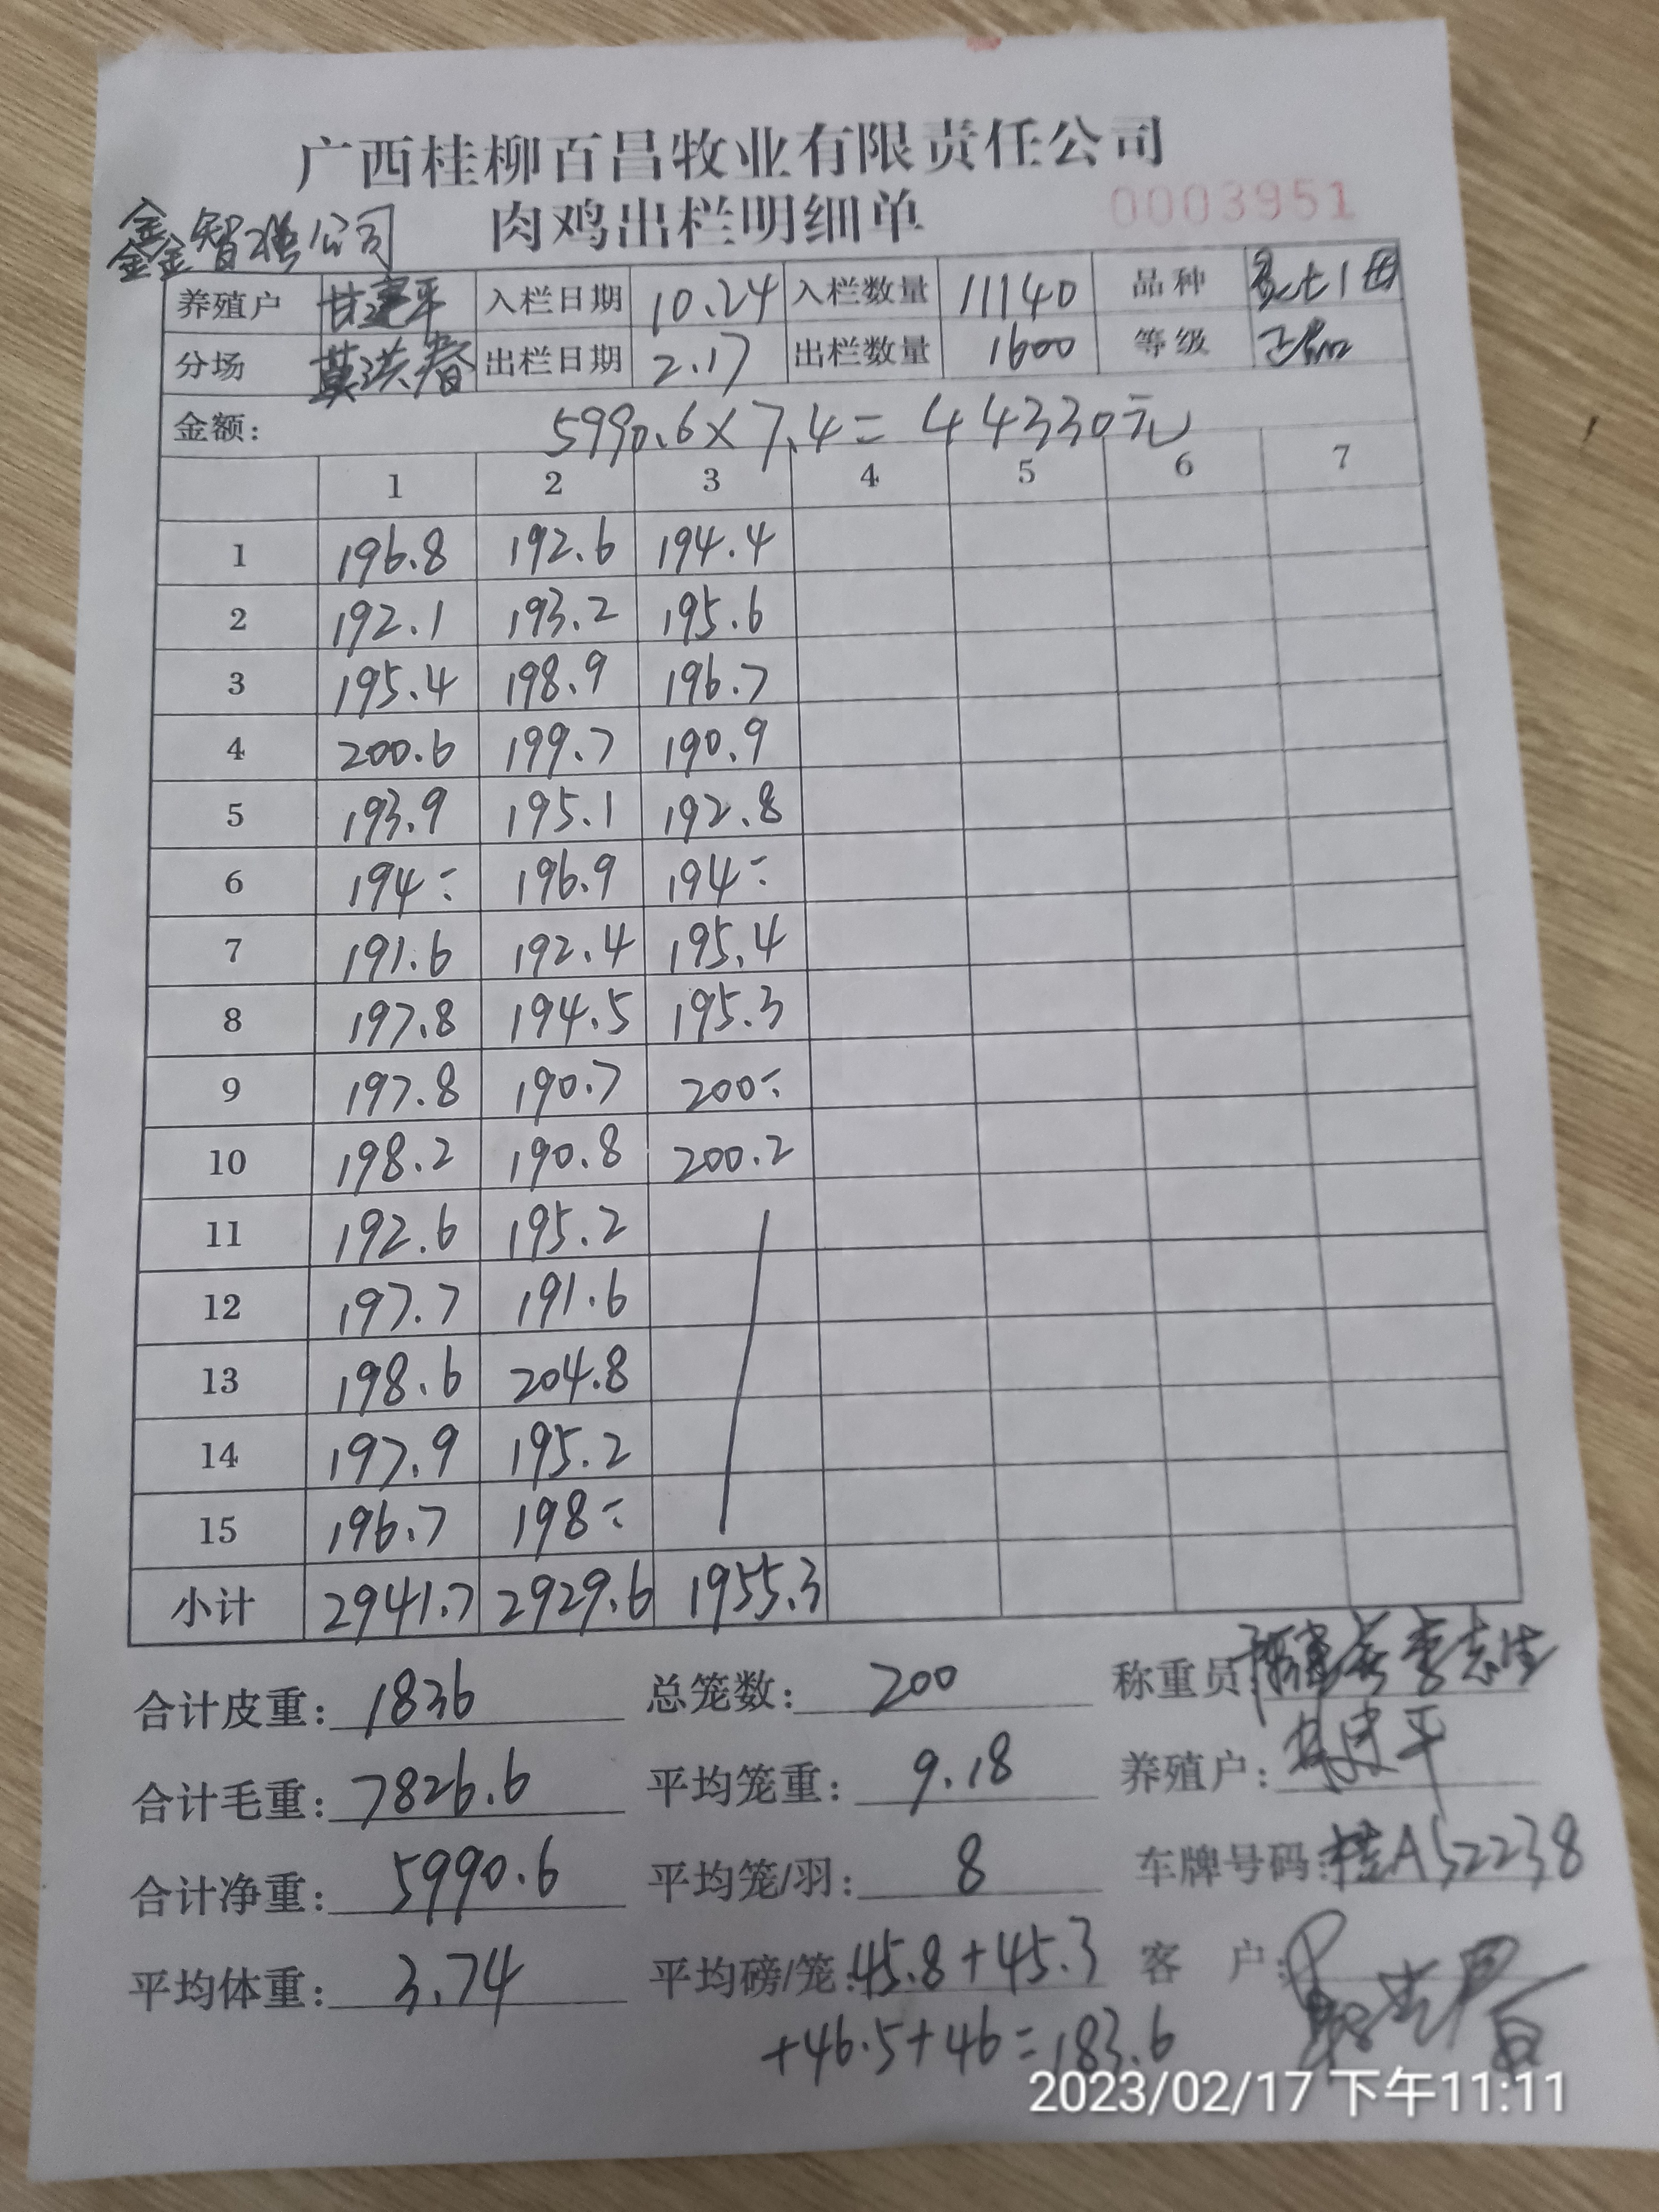 广西桂柳百昌牧业有限责任公司
肉鸡出栏明细单 0003951
鑫智雅公司
养殖户 甘建平 入栏日期 10.24 入栏数量 11140 品种
分场 莫洪春 出栏日期 2.17 出栏数量 1600 等级
金额: 5990.6×7.4=44330元
1 2 3 4 5 6 7
1 196.8 192.6 194.4
2 192.1 193.2 195.6
3 195.4 198.9 196.7
4 200.6 199.7 190.9
5 193.9 195.1 192.8
6 194÷ 196.9 194÷
7 191.6 192.4 195.4
8 197.8 194.5 195.3
9 197.8 190.7 200÷
10 198.2 190.8 200.2
11 192.6 195.2
12 197.7 191.6
13 198.6 204.8
14 197.9 195.2
15 196.7 198÷
小计 2941.7 2929.6 1955.3
合计皮重: 1836 总笼数: 200 称重员: 李志生
合计毛重: 7826.6 平均笼重: 9.18 养殖户: 甘建平
合计净重: 5990.6 平均笼/羽: 8 车牌号码: 桂A52238
平均体重: 3.74 平均磅/笼: 45.8+45.3 客 户:
+46.5+46=183.6
2023/02/17 下午11:11